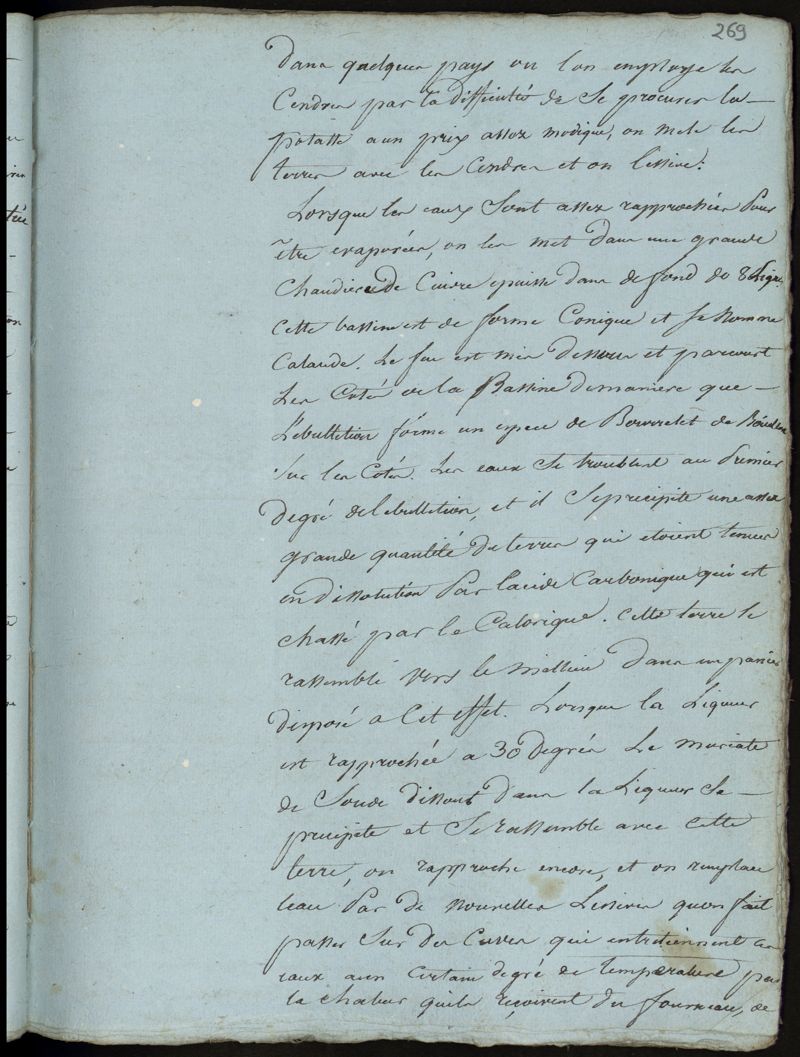 269
dans quelques pays ou l'on employe les
Cendres par la difficultés de se procurer la
potasse a un prix assez modique, on mele les
terres avec les Cendres et on lessive.
Lorsque les eaux Sont assez rapprochées Pour
être evaporées, on les met dans une grande
Chaudiere de Cuivre epaisse dans de fond de 8 Lig.
Cette bassine est de forme Conique et se nomme
Le feu est mis dessous et parcourt
Les Coté de la Bassine de maniere que
L'ebullition forme un espece de Bourrelet de
Sur les Cotés. Les eaux se troublent au Premier
degré de lebullition, et il Se precipite une assez
grande quantité de terres qui etoient tenues
en dissolution Par lacide Carbonique qui est
chassé par le Calorique. cette terre se
rassemble vers le millieu dans un panier
disposé a Cet effet. Lorsque la Liqueur
est rapprochée a 30 degrés Le muriate
de Soude dissout dans la Liqueur Se
precipite et Se rassemble avec cette
terre, on rapproche encore, et on remplace
leau Par de nouvelles Lessives quon fait
passer Sur des Cuves qui entretiennent les
eaux a un Certain degré de temperature par
la chaleur quils reçoivent du fourneau, de